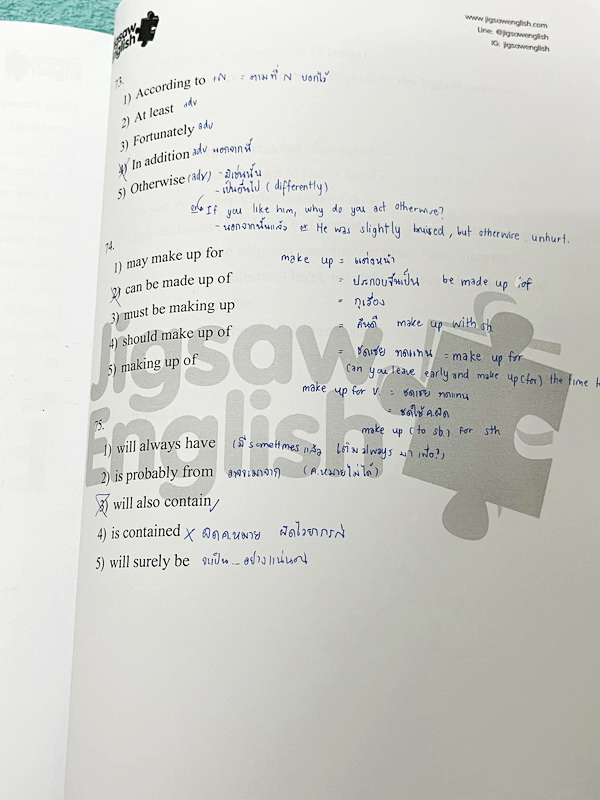 Jigsaw English
www.jigsawenglish.com
Line: @jigsawenglish
IG: jigsawenglish
73.
1) According to +N = ตามที่ N บอกไว้
2) At least adv
3) Fortunately adv
4) In addition adv นอกจากนี้
5) Otherwise (adv) - มิเช่นนั้น
- เป็นอื่นไป (differently)
ex If you like him, why do you act otherwise?
- นอกจากนั้นแล้ว ex He was slightly bruised, but otherwise unhurt.
74.
1) may make up for make up = แต่งหน้า
2) can be made up of = ประกอบขึ้นเป็น be made up of
3) must be making up = กุเรื่อง
4) should make up of = คืนดี make up with sb.
5) making up of = ชดเชย ทดแทน = make up for
Can you leave early and make up (for) the time
make up for v. = ชดเชย ทดแทน
= ชดใช้ค.ผิด
make up (to sb.) for sth
75.
1) will always have (มี sometimes แล้ว เติม always มา เพื่อ?)
2) is probably from อาจจะมาจาก (ค.หมายไม่ได้)
3) will also contain
4) is contained X ผิดค.หมาย ผิดไวยากรณ์
5) will surely be จะเป็น ... อย่างแน่นอน
Jigsaw
English